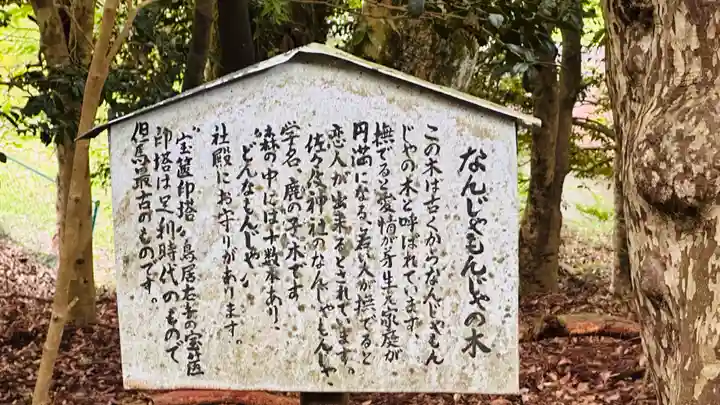 なんじゃもんじゃの木
この木は古くからなんじゃもん
じゃの木と呼ばれています。
撫でると愛情が身生え家庭が
円満になる、若い人が撫でると
恋人が出来るとされています。
佐々伎神社のなんじゃもんじゃ、
学名、鹿の子木です
森の中には十数本あり、
〝どんなもんじゃ〟
社殿にお守りがあります。
〝宝篋印塔〟鳥居左の宝篋
印塔は足利時代のもので
但馬最古のものです。